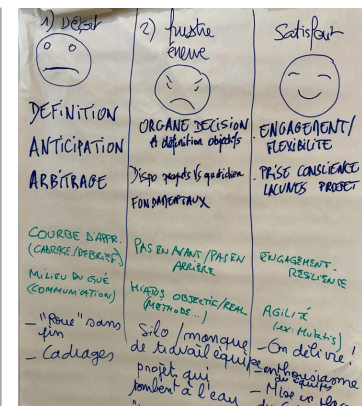 1) Déçu
DEFINITION
ANTICIPATION
ARBITRAGE
COURBE D'APPR.
(CADRAGE/DEBRIEF)
MILIEU DU GUÉ
(COMMUNICATION)
- "Roue" sans
fin
- Cadrages
2) frustré
énervé
ORGANE DECISION
définition objectifs
Dispo projets Vs quotidien
FONDAMENTAUX
PAS EN AVANT / PAS EN
ARRIÈRE
HIATUS OBJECTIF/REAL
(METHODES...)
Silo / manque
de travail équipe
projets qui
tombent à l'eau
Satisfait
ENGAGEMENT/
FLEXIBILITE
PRISE CONSCIENCE
LACUNES PROJET
ENGAGEMENT-
RESILIENCE
AGILITÉ
(ex: Mutatis)
- On délivre!
- enthousiasme
équipes
- Mise en